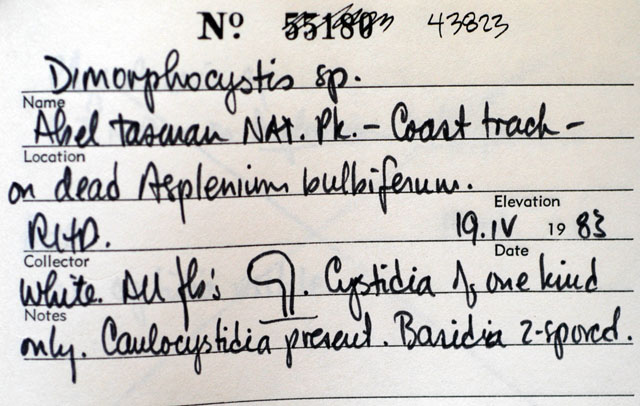 Nº 55180 43823
Dimorphocystis sp.
Name
Abel Tasman NAT. Pk. – Coast track –
Location
on dead Asplenium bulbiferum.
Elevation
RHD. 19.IV 19 83
Collector Date
White. All fb's . Cystidia of one kind
Notes
only. Caulocystidia present. Basidia 2-spored.